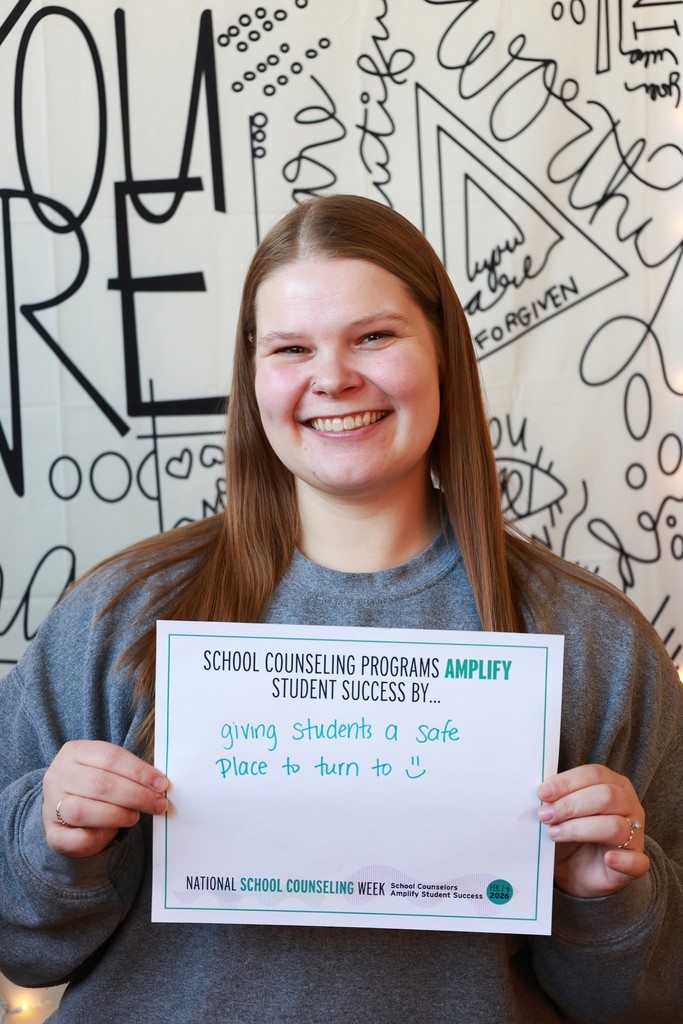 YOU
ARE
you
are
FORGIVEN
worthy
SCHOOL COUNSELING PROGRAMS AMPLIFY
STUDENT SUCCESS BY...
giving students a safe
Place to turn to
NATIONAL SCHOOL COUNSELING WEEK
School Counselors
Amplify Student Success
FEB. 2-6
2026